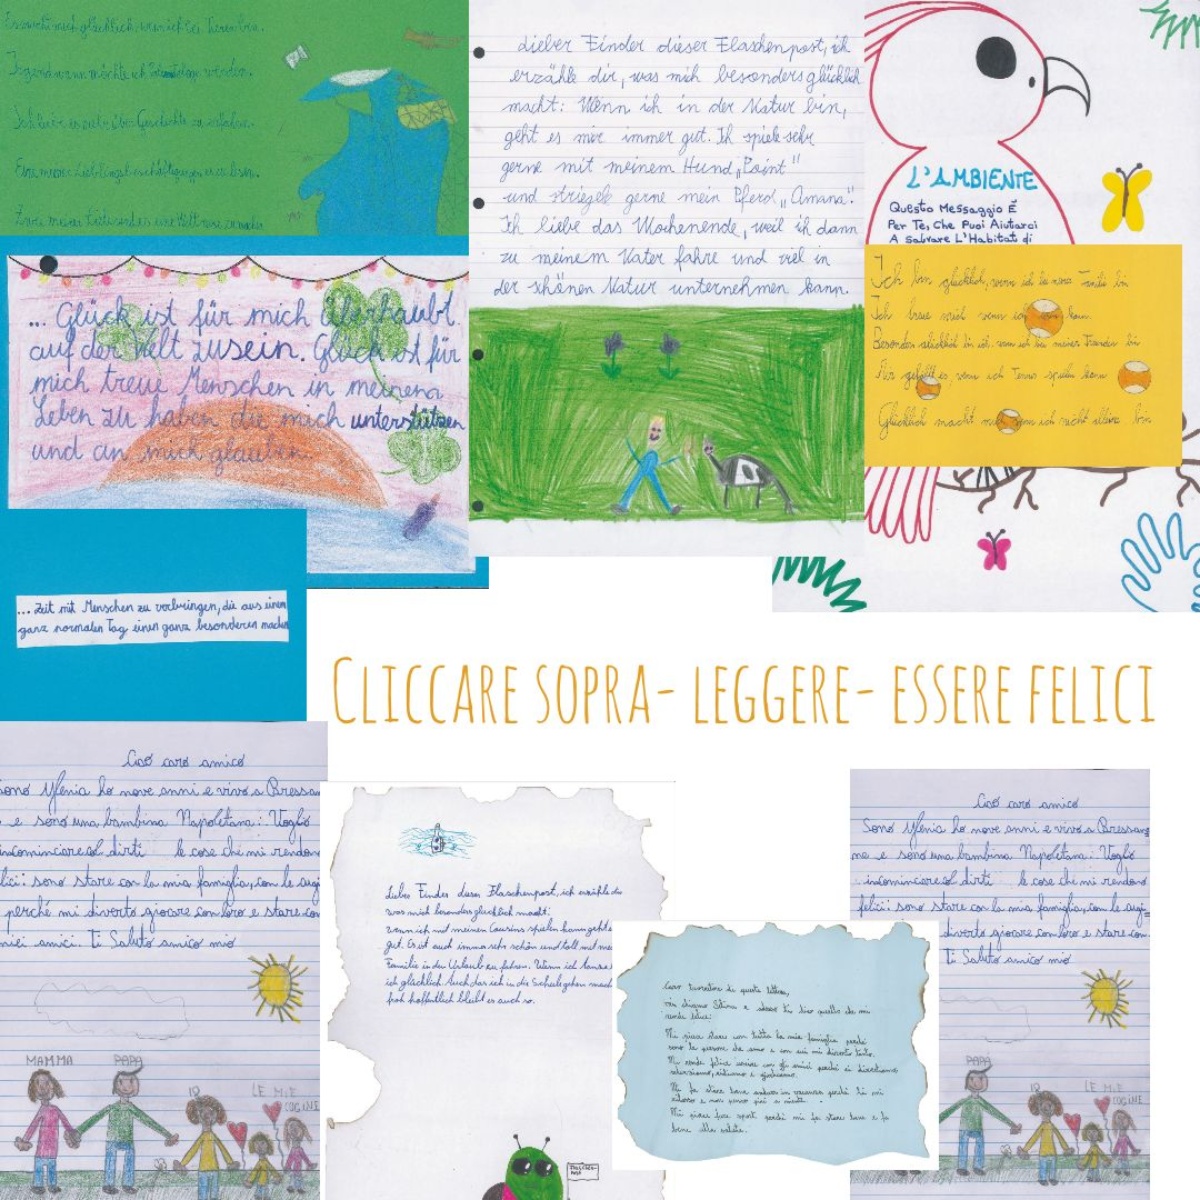 Es macht mich glücklich, wenn ich bei Tieren bin.
Irgendwann möchte ich werden.
Ich liebe es sehr über Geschichte zu erfahren.
Eine meiner Lieblingsbeschäftigungen ist es lesen.
dieber Finder dieser Flaschenpost, ich
erzähle dir, was mich besonders glücklich
macht: Wenn ich in der Natur bin,
geht es mir immer gut. Ich spiele sehr
gerne mit meinem Hund „Point"
und striegele gerne mein Pferd „Amana".
Ich liebe das Wochenende, weil ich dann
zu meinem Vater fahre und viel in
der schönen Natur unternehmen kann.
L'AMBIENTE
Questo Messaggio È
Per Te, Che Puoi Aiutarci
A Salvare L'Habitat di
Ich bin glücklich, wenn ich bei meiner Familie bin
Ich freue mich wenn ich kann.
Besonders glücklich bin ich, wenn ich bei meinen Freunden bin
Mir gefällt es wenn ich Tennis spielen kann
Glücklich macht mich wenn ich nicht alleine bin
... Glück ist für mich überhaubt
auf der Welt zusein. Glück ist für
mich treue Menschen in meinem
Leben zu haben die mich unterstützen
und an mich glauben.
... Zeit mit Menschen zu verbringen, die aus einem
ganz normalen Tag einen ganz besonderen machen
Cliccare sopra- leggere- essere felici
Ciao caro amico
sono Ylenia ho nove anni e vivo a Bressan
e sono una bambina Napoletana: Voglio
incominciare dirti le cose che mi rendono
lici: sono stare con la mia famiglia, con le cugi
perché mi diverto giocare con loro e stare con
miei amici. Ti Saluto amico mio
MAMMA PAPÀ IO LE MIE CUGINE
Liebe Finder dieser Flaschenpost, ich erzähle dir
was mich besonders glücklich macht:
wenn ich mit meinen Cousins spielen kann geht e
gut. Es ist auch immer sehr schön und toll mit me
Familie in den Urlaub zu fahren. Wenn ich tanze
ich glücklich. Auch das ich in die Schule gehen mach
froh hoffentlich bleibt es auch so.
Caro trovatore di questa lettera,
mi chiamo e adesso ti dico quello che mi
rende felice:
Mi piace stare con tutta la mia famiglia perché
sono le persone che amo e con cui mi diverto tanto.
Mi rende felice uscire con gli amici perché ci divertiamo
scherziamo, ridiamo e giochiamo.
Mi fa stare bene andare in vacanza perché lì mi
rilasso e non penso più a niente.
Mi piace fare sport perché mi fa stare bene e fa
bene alla salute.
Ciao caro amico
Sono Ylenia ho nove anni e vivo a Bressano
ne e sono una bambina Napoletana: Voglio
incominciare dirti le cose che mi rendono
felici: sono stare con la mia famiglia, con le cugi=
diverto giocare con loro e stare con
Ti Saluto amico mio
PAPÀ IO LE MIE CUGINE